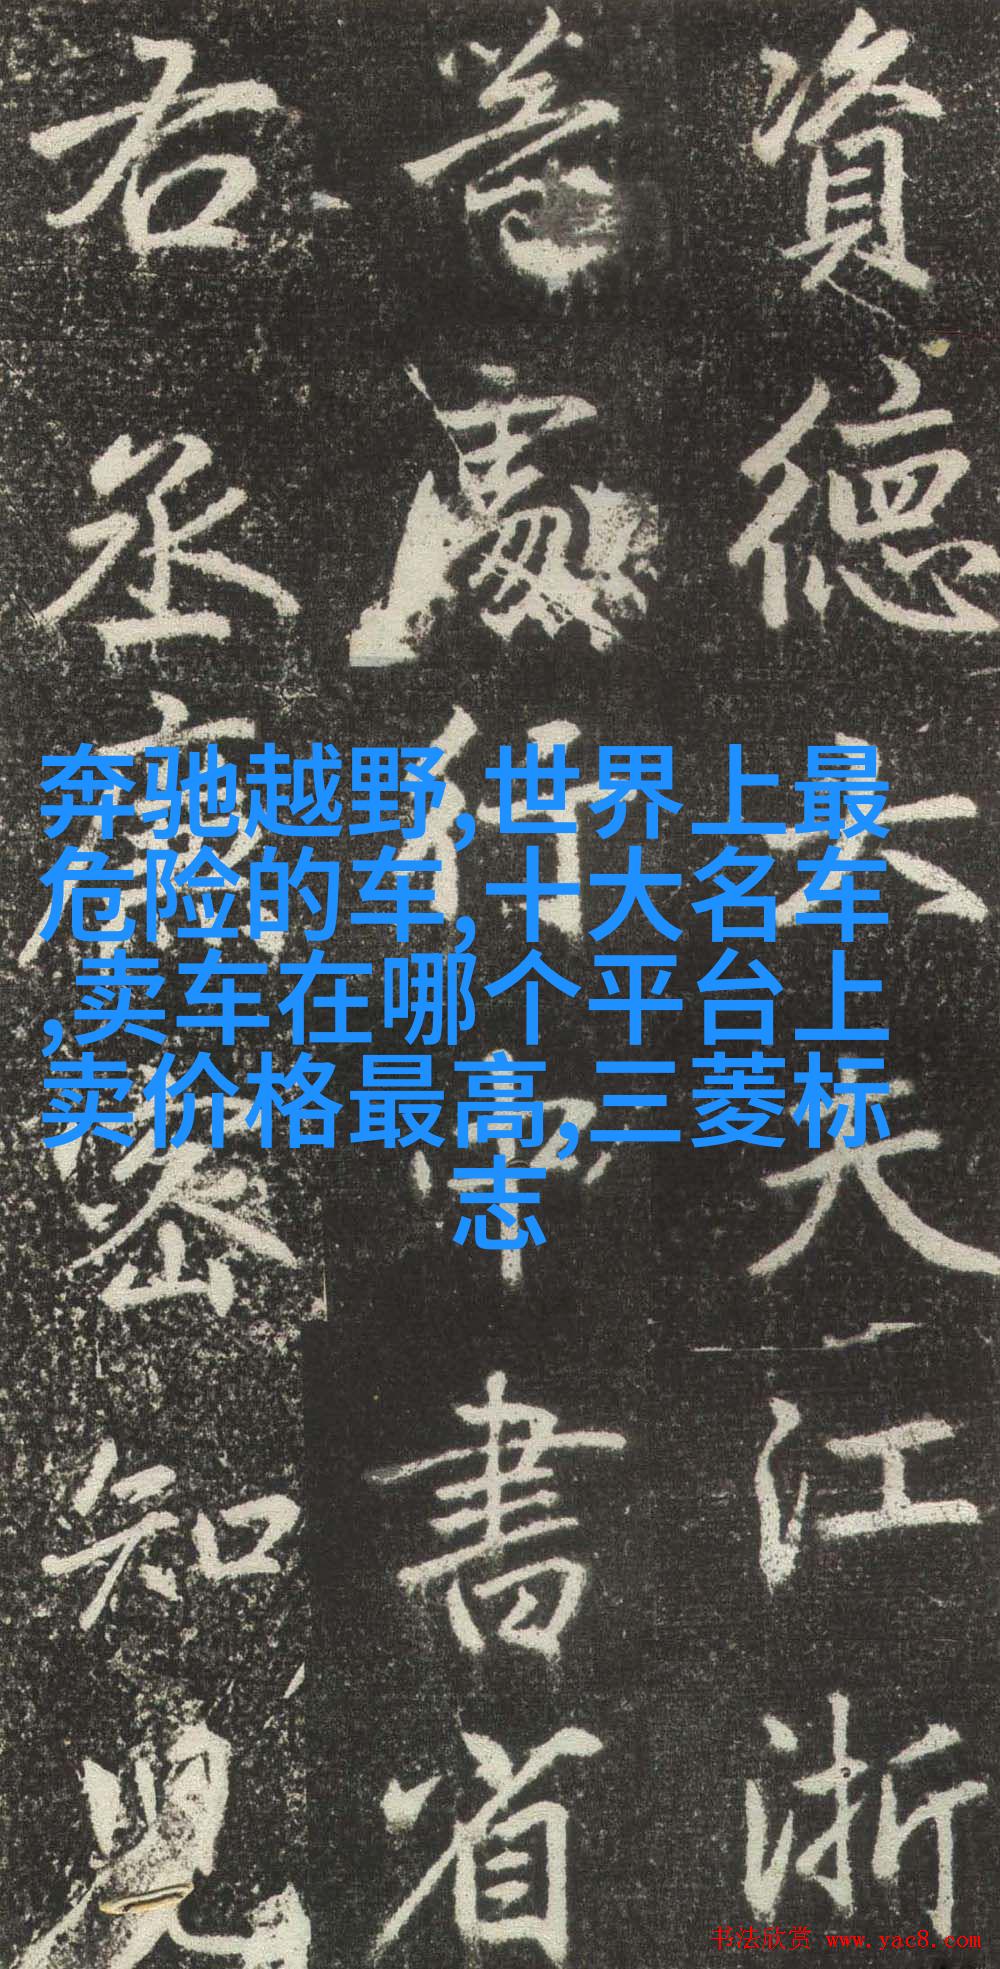 奔驰越野,世界上最
危险的车,十大名车
,卖车在哪个平台上
卖价格最高,三菱标
志
資德大夫江浙
等處行中書省
右丞廉密知兒
书法欣赏 www.yac8.com